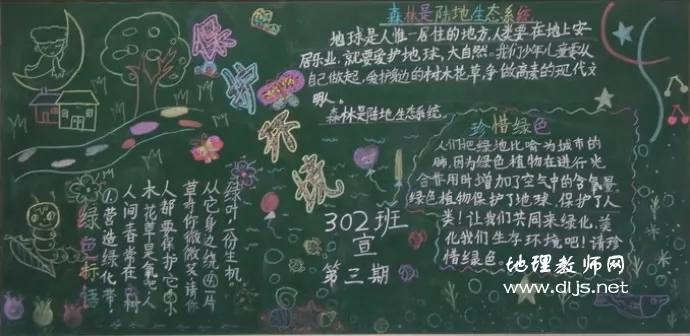 保护环境
森林是陆地生态系统
地球是人惟一居住的地方,人类要在地上安
居乐业,就要爱护地球,大自然。我们少年儿童要从
自己做起,爱护身边的树木花草,争做高素的现代文
明人。
森林是陆地生态系统
珍惜绿色
人们把绿地比喻为城市的
肺,因为绿色植物在进行光
合作用时增加了空气中的含氧量
绿色植物保护了地球,保护了人
类!让我们共同来绿化,美
化我们生存环境吧!请珍
惜绿色。
302班
宣
第三期
绿叶一份生机。
从它身边绕
草对你微微笑请你
人都要保护它
木花草是氧吧人
人间春常在树
①营造绿化带,
绿色标语
地理教师网
www.dljs.net